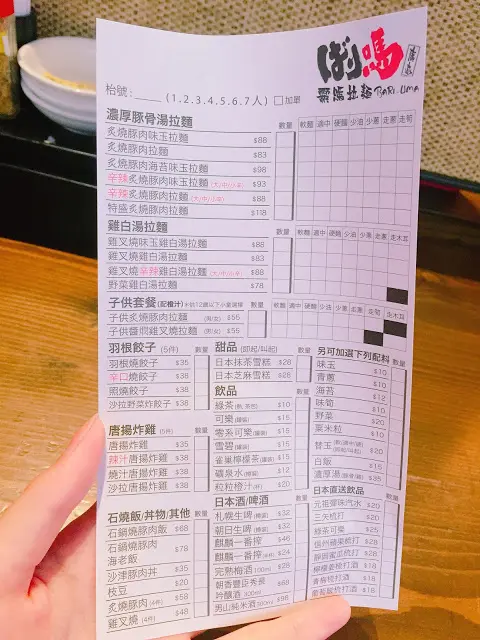 ばり嗎
霸嗎拉麵 BARI-UMA
枱號：____ (1.2.3.4.5.6.7人) □加單
濃厚豚骨湯拉麵 數量 軟麵 適中 硬麵 少油 少蔥 走蔥 走筍
炙燒豚肉味玉拉麵 $88
炙燒豚肉拉麵 $83
炙燒豚肉海苔味玉拉麵 $98
辛辣炙燒豚肉味玉拉麵(大/中/小辛) $93
辛辣炙燒豚肉拉麵(大/中/小辛) $88
特盛炙燒豚肉拉麵 $118
雞白湯拉麵 數量 軟麵 適中 硬麵 少油 少蔥 走蔥 走木耳
雞叉燒味玉雞白湯拉麵 $88
雞叉燒雞白湯拉麵 $83
雞叉燒辛辣雞白湯拉麵(大/中/小辛) $88
野菜雞白湯拉麵 $78
子供套餐(配橙汁) 數量 軟麵 適中 硬麵 少油 少蔥 走蔥 走筍 走木耳
子供炙燒豚肉拉麵 (男/女) $55
子供醬燜雞叉燒拉麵 (男/女) $55
羽根餃子 (5件) 數量
羽根燒餃子 $35
辛口燒餃子 $38
照燒餃子 $38
沙拉野菜炸餃子 $38
唐揚炸雞 (5件) 數量
唐揚炸雞 $35
辣汁唐揚炸雞 $38
燒汁唐揚炸雞 $38
沙拉唐揚炸雞 $38
石燒飯/丼物/其他 數量
石鍋燒豚肉飯 $68
石鍋燒豚肉
海老飯 $78
沙津豚肉丼 $35
枝豆 $20
炙燒豚肉 (4件) $58
雞叉燒 (4件) $48
甜品 (即起/叫起) 數量
日本抹茶雪糕 $28
日本芝麻雪糕 $28
飲品
綠茶(熱,茶包) $10
可樂(罐裝) $15
零系可樂(罐裝) $15
雪碧(罐裝) $15
雀巢檸檬茶(罐裝) $15
礦泉水(樽裝) $12
粒粒橙汁(杯) $20
日本酒/啤酒 數量
札幌生啤(樽裝) $32
朝日生啤(樽裝) $32
麒麟一番搾 $46
麒麟一番搾(杯裝) $24
完熟梅酒(100ml) $28
朝香豐臣秀長
吟釀酒 300ml $68
男山純米酒 300ml $98
另可加選下列配料
味玉 $10
青蔥 $10
海苔 $12
味筍 $10
野菜 $20
粟米粒 $10
替玉 $20
白飯 $15
濃厚湯 $35
日本直送飲品
元祖彈珠汽水 $20
三矢梳打 $20
綠茶可樂 $25
信州蘋果梳打 $28
靜岡蜜瓜梳打 $28
檸檬姜梳打酒 $18
青森梳打酒 $18
葡萄酸梳打酒 $18